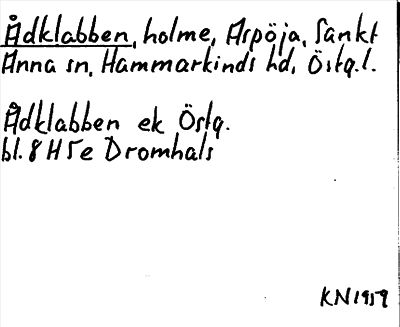 Ådklabben, holme, Aspöja, Sankt
Anna sn, Hammarkinds hd, Östg.l.
Ådklabben ek Östg.
bl. 8 H 5e Dromhals
KN 1959